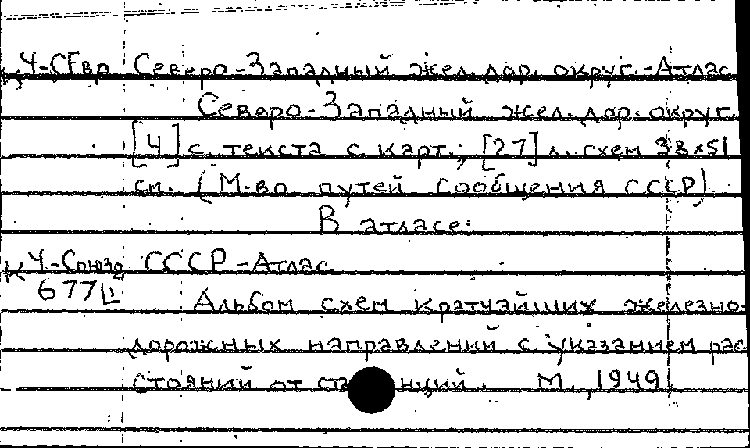 К Ч-СЕвр Северо-Западный жел. дор. округ.-Атлас
Северо-Западный жел. дор. округ.
[4] с. текста с карт.; [27] л. схем 38×51
см. (М-во путей сообщения СССР)
В атласе:
К Ч-Союз СССР-Атлас
677 Альбом схем кратчайших железно-
дорожных направлений с указанием рас
стояний от станций. М., 1949.